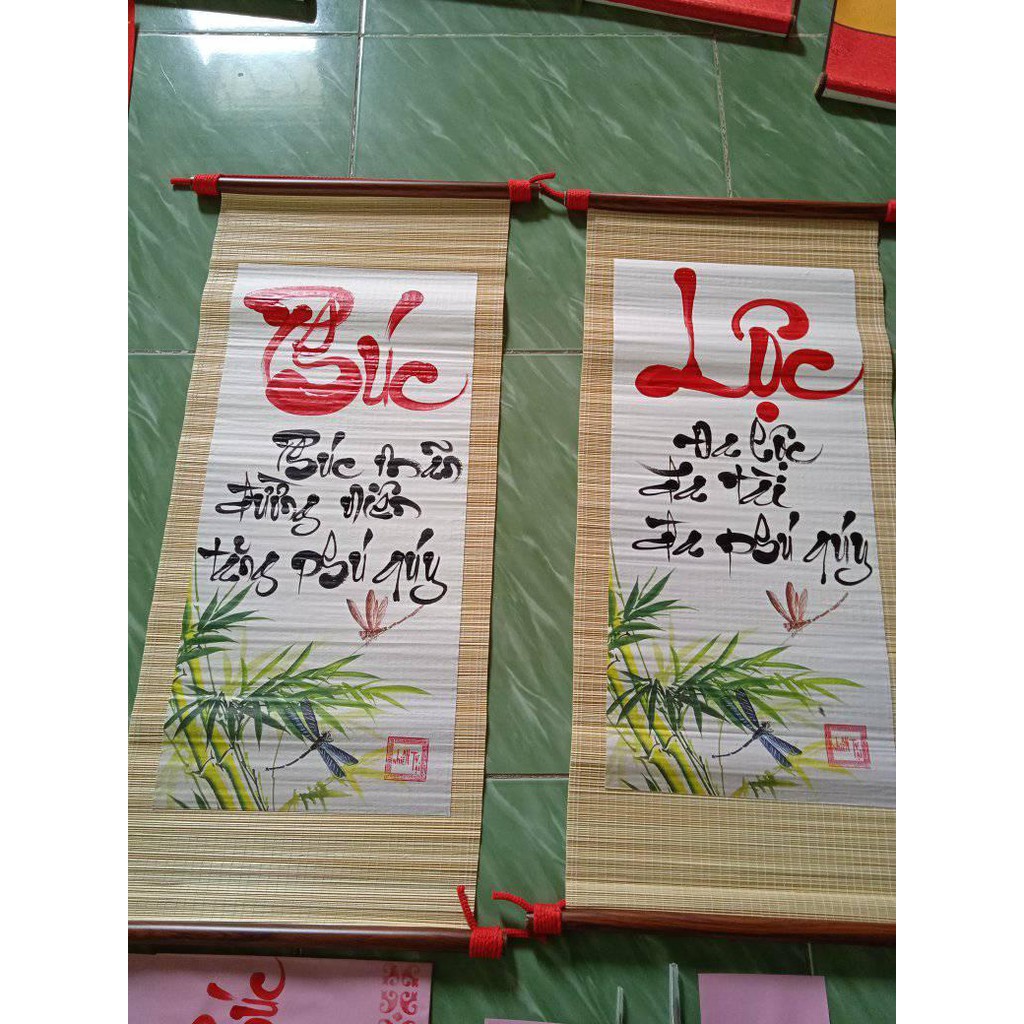 Phúc
Phúc mãn
đường niên
tăng phú qúy
Lộc
Đa lộc
đa tài
đa phú qúy